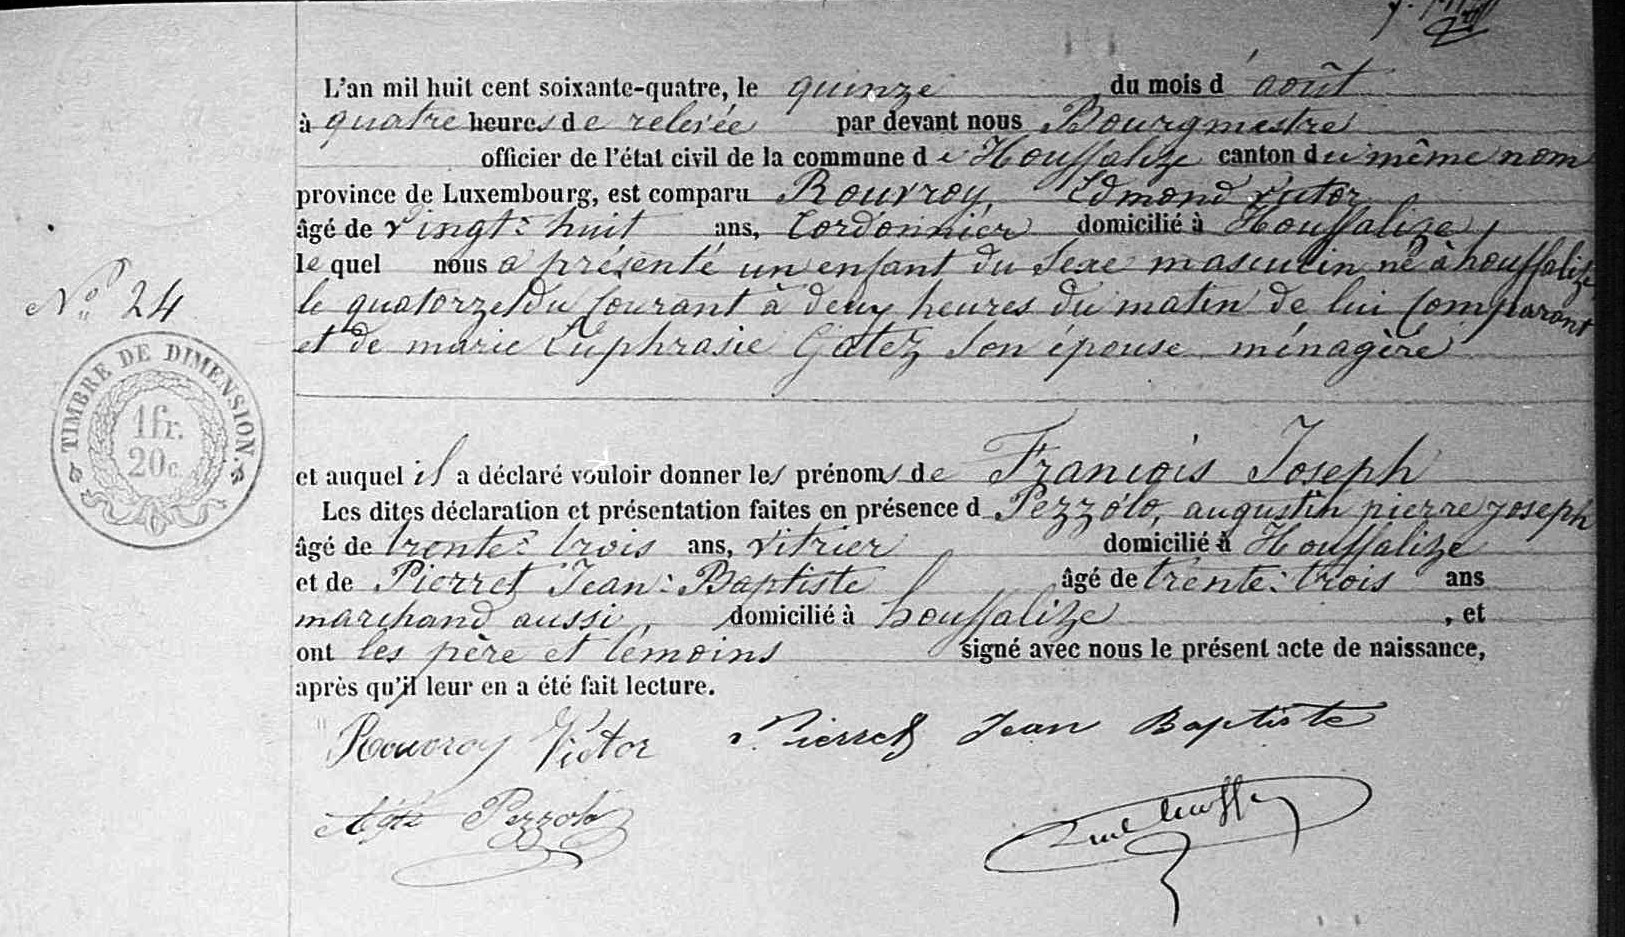 L'an mil huit cent soixante-quatre, le quinze du mois d'août
à quatre heures de relevée par devant nous Bourgmestre
officier de l'état civil de la commune de Houffalize canton du même nom
province de Luxembourg, est comparu Rouvroy, Edmond Victor
âgé de vingt-huit ans, Cordonnier domicilié à Houffalize,
lequel nous a présenté un enfant du sexe masculin né à houffalize
le quatorze du courant à deux heures du matin de lui comparant
et de marie Euphrasie Gatez son épouse ménagère
N° 24
TIMBRE DE DIMENSION.
1fr.
20c.
et auquel il a déclaré vouloir donner les prénoms de François Joseph
Les dites déclaration et présentation faites en présence d Pezzolo, augustin pierre joseph
âgé de trente-trois ans, vitrier domicilié à Houffalize
et de Pierret Jean-Baptiste âgé de trente-trois ans
marchand aussi, domicilié à houffalize, et
ont les père et témoins signé avec nous le présent acte de naissance,
après qu'il leur en a été fait lecture.
Rouvroy Victor Pierret Jean Baptiste
Agte Pezzolo